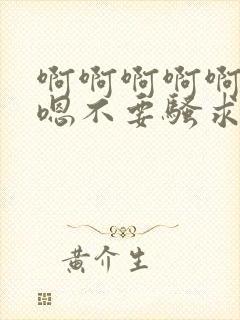 啊啊啊啊啊
嗯不要骚求
黄介生